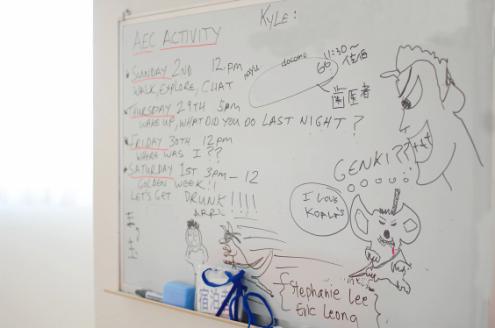 KYLE:
AEC ACTIVITY
SUNDAY 2ND 12pm
WALK, EXPLORE, CHAT
THURSDAY 29TH 5am
WAKE UP, WHAT DID YOU DO LAST NIGHT?
FRIDAY 30TH 12pm
WHERE WAS I??
SATURDAY 1ST 3pm - 12
GOLDEN WEEK!!
LET'S GET DRUNK!!!!
docomo
11:30~
歯医者
GENKI??
I LOVE
KOALA'S
Stephanie Lee
Eric Leong